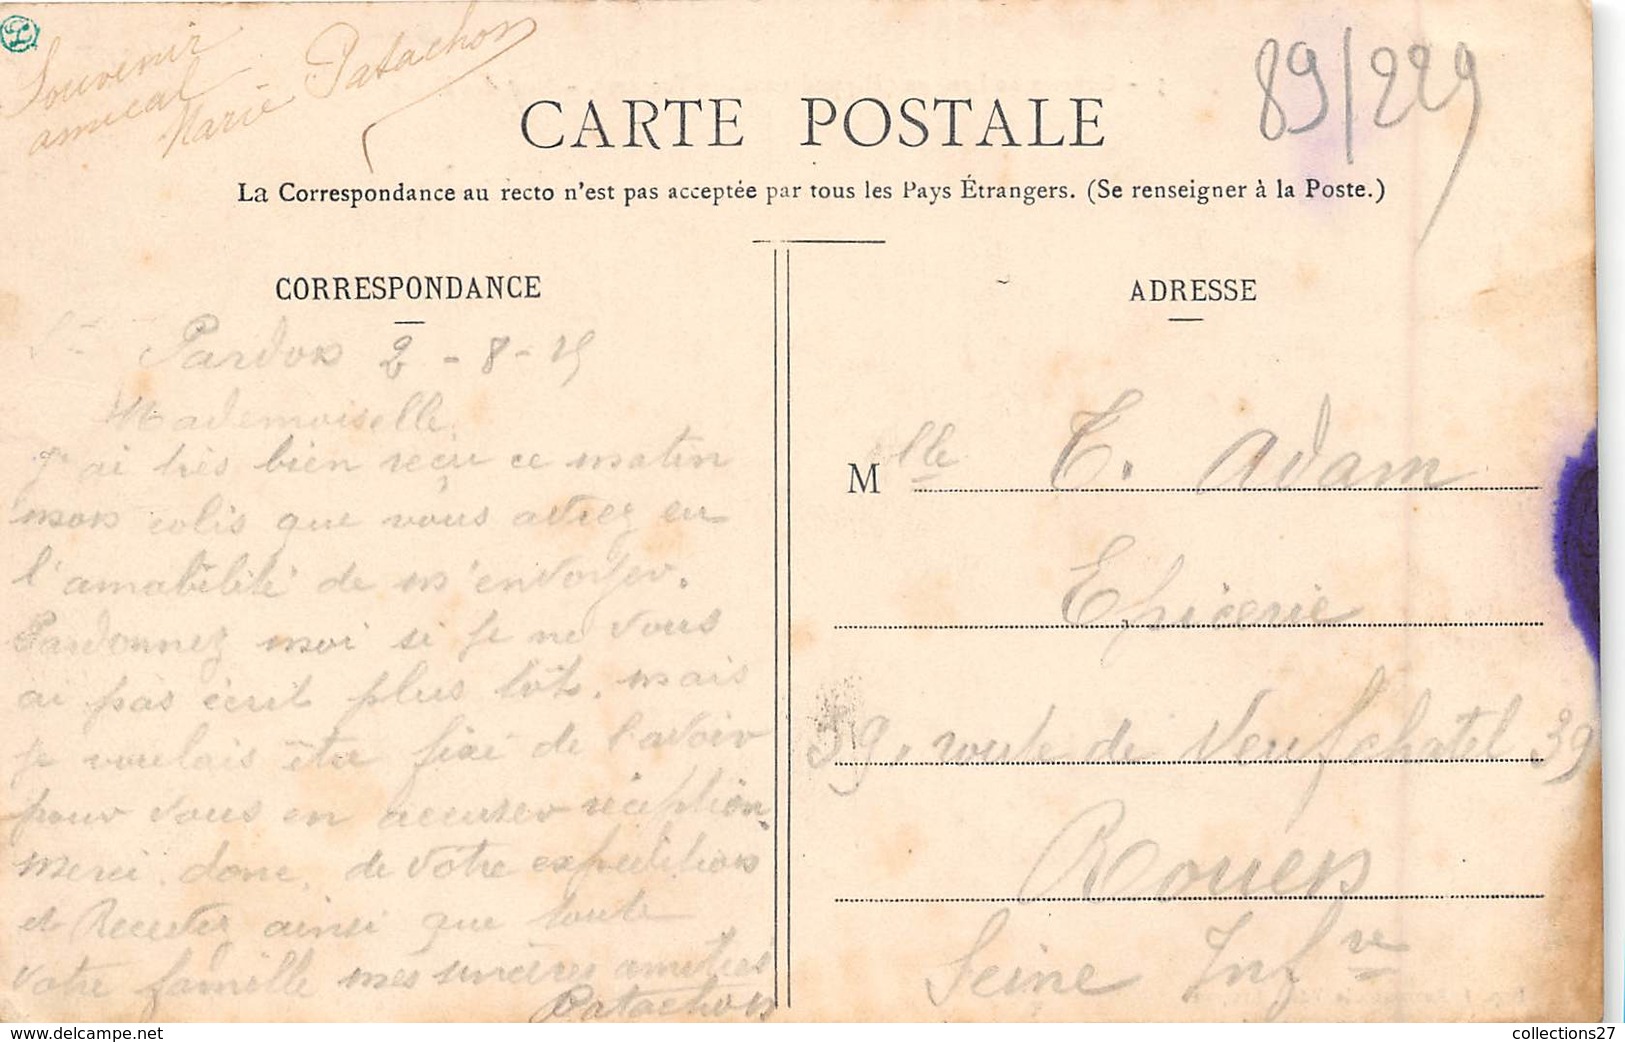 Souvenir
amical
Marie Patachon
89/229
CARTE POSTALE
La Correspondance au recto n'est pas acceptée par tous les Pays Étrangers. (Se renseigner à la Poste.)
CORRESPONDANCE
Pardon 2-8-15
Mademoiselle.
J'ai très bien reçu ce matin
mon colis que vous aviez eu
l'amabilité de m'envoyer.
Pardonnez moi si je ne vous
ai pas écrit plus tôt, mais
je voulais être fixé de l'avoir
pour vous en accuser réception.
Merci donc, de votre expédition
et Recevez ainsi que toute
votre famille mes sincères amitiés
Patachon
ADRESSE
Mlle T. Adam
Epicerie
39, route de Neufchatel 39
Rouen
Seine Infre
delcampe.net
collections27